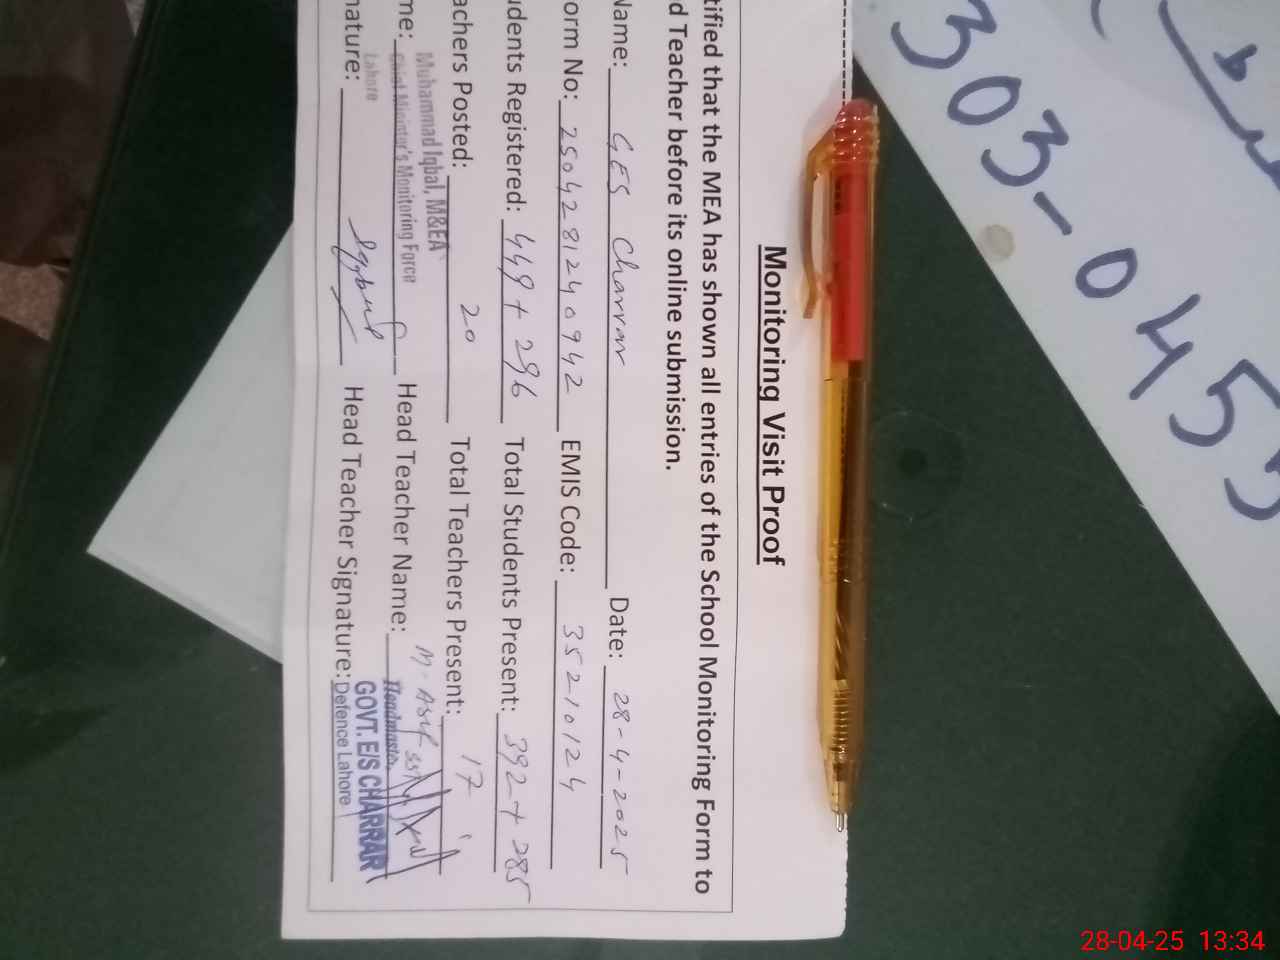 Monitoring Visit Proof
tified that the MEA has shown all entries of the School Monitoring Form to
d Teacher before its online submission.
Name: GES Charrar Date: 28-4-2025
orm No: 2504281240942 EMIS Code: 35210124
udents Registered: 449 + 296 Total Students Present: 392 + 285
achers Posted: 20 Total Teachers Present: 17
Muhammad Iqbal, M&EA
Chief Minister's Monitoring Force
Lahore
me: Head Teacher Name: M. Asif SST
nature: Iqbal Head Teacher Signature:
Headmaster,
GOVT. E/S CHARRAR
Defence Lahore
303-0455
28-04-25 13:34